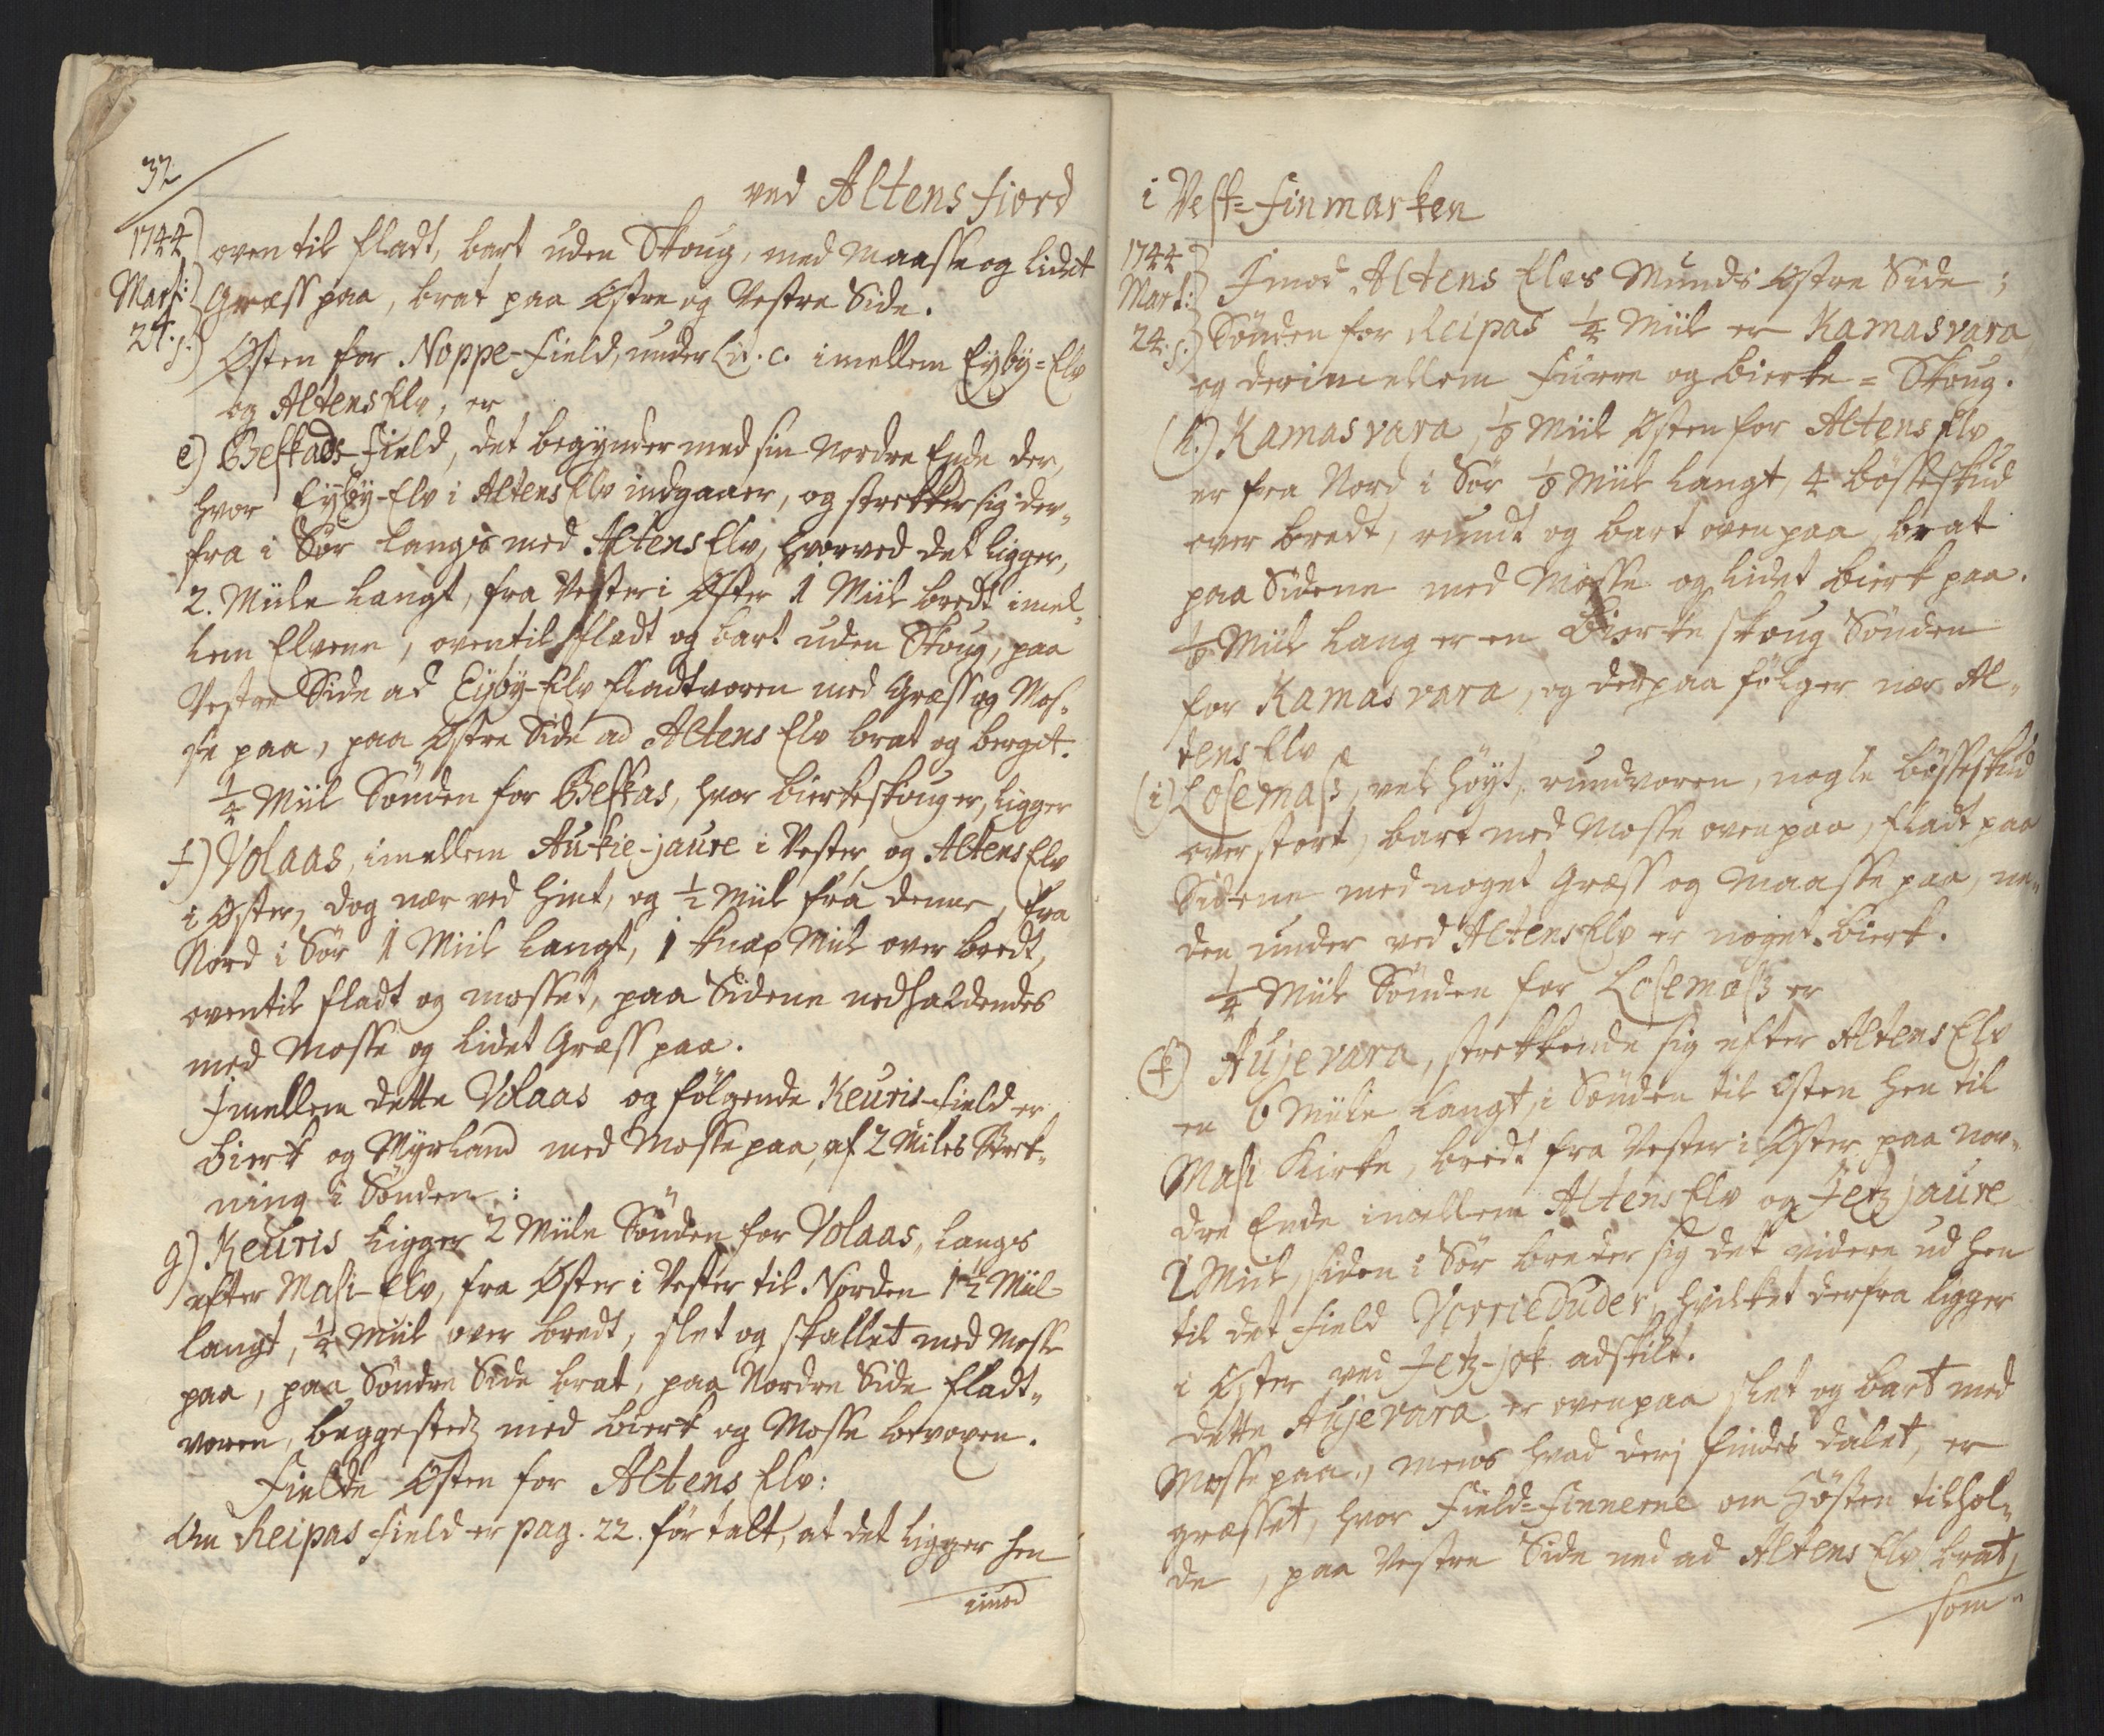 32
ved Altens fiord
1744
Marti:
24. s.
oven til fladt, bart uden Skoug, med Maasse og lidet
Græss paa, brat paa Østre og Vestre Side.
Østen for Noppe-Field, under Lit. c. imellem Eyby=Elv
og Altens Elv, er
e) Beskads-Field, det begynder med sin Nordre Ende der,
hvor Eyby-Elv i Altens Elv indgaaer, og strekker sig der„
fra i Sør langs med Altens Elv, hvorved det ligger,
2. Miile langt, fra Vester i Øster 1 Miil bredt imel„
lem Elvene, oventil fladt og bart uden Skoug, paa
Vestre Side ad Eyby-Elv fladtvoren med Græss og Mos„
se paa, paa Østre Side ad Altens Elv brat og berget.
¼ Miil Sønden for Beskas, hvor Bierkeskoug er, ligger
f) Volaas, imellem Aukie-jaure i Vester og Altens Elv
i Øster, dog nær ved hint, og ½ Miil fra denne, fra
Nord i Sør 1 Miil langt, 1 knap Miil over bredt,
oventil fladt og mosset, paa Sidene nedhaldendes
med Mosse og lidet Græss paa.
Imellem dette Volaas og følgende Keuris-Field er
Bierk og Myrland med Mosse paa, af 2 Miiles Strek„
ning i Sønden:
g) Keuris ligger 2 Miile Sønden for Volaas, langs
efter Masi-Elv, fra Øster i Vester til Norden 1½ Miil
langt, ¼ Miil over bredt, slet og skallet med Mosse
paa, paa Søndre Side brat, paa Nordre Side fladt„
voren, beggestedz med Bierk og Mosse bevoxen.
Fielde Østen for Altens Elv:
Om Reipas Field er pag. 22. før talt, at det ligger hen
imod
i Vest=Finmarken
1744
Mart:
24. s.
Imod Altens Elvs Munds Østre Side;
Sønden for Reipas ¼ Miil er Kamasvara
og derimellem Furre og Bierke=Skoug.
(h.) Kamasvara, ⅛ Miil Østen for Altens Elv
er fra Nord i Sør ⅛ Miil langt, 4 bøsseskud
over bredt, rundt og bart oven paa, brat
paa Sidene med Mosse og lidet Bierk paa.
⅛ Miil lang er en Bierke skoug Sønden
for Kamasvara, og derpaa følger nær Al„
tens Elv
(i) Losemass, vel høyt, rundvoren, nogle bøsseskud
over stort, bart med Mosse oven paa, fladt paa
Sidene med noget Græss og Maasse paa, ne„
den under ved Altens Elv er noget Bierk.
¼ Miil Sønden for Losemass er
(k) Aujevara, strekkende sig efter Altens Elv
en 6 Miile langt, i Sønden til Østen hen til
Masi Kirke, bredt fra Vester i Øster paa Nor„
dre Ende imellem Altens Elv og Jetzjaure
1 Miil, siden i Sør breder sig det videre ud hen
til det Field Vorrieduder, hvilket derfra ligger
i Øster ved Jetz-jok adskilt.
dette Aujevara er ovenpaa slet og bart med
Mosse paa, mens hvad deri findes dalet, er
græsset, hvor Field=Finnerne om Høsten tilhol„
de, paa Vestre Side ned ad Altens Elv brat,
som„